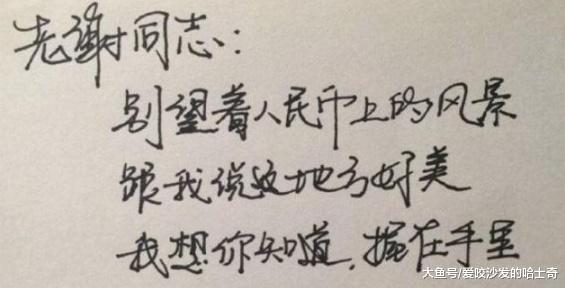 老谢同志:
别望着人民币上的风景
跟我说这地方好美
我想你知道.握在手里
大鱼号/爱咬沙发的哈士奇